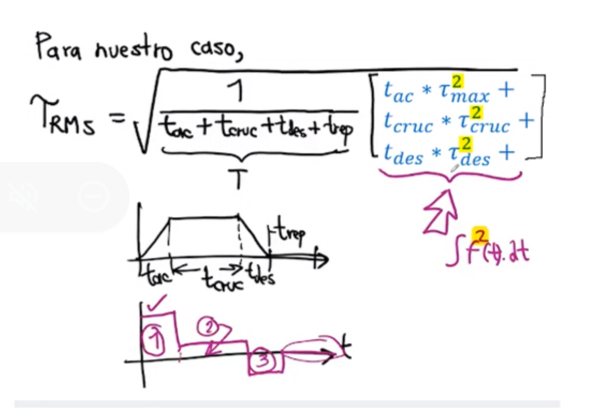 Para nuestro caso,
τRMS = √ 1 / (tac + tcruc + tdes + trep) [ tac * τ²max +
tcruc * τ²cruc +
tdes * τ²des + ]
T
∫f²(t).dt
trep
tac tcruc tdes
1 2 3 t